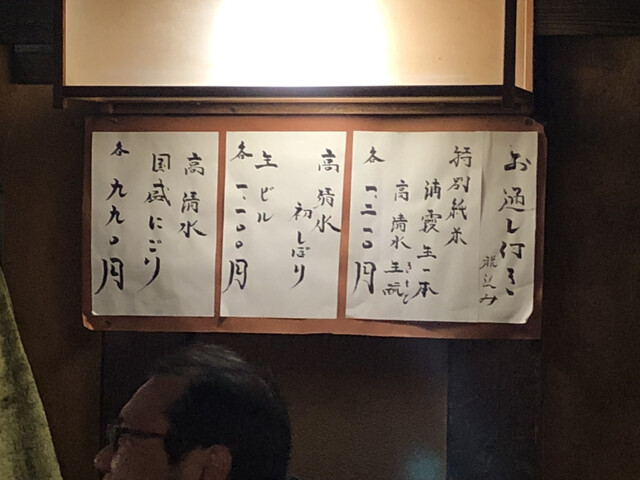 お通し付き
税込み
特別純米
浦霞生一本
高清水生酛
きもと
各一、三一〇円
高清水
初しぼり
生ビル
各一、一〇〇円
高清水
国盛にごり
各九九〇円